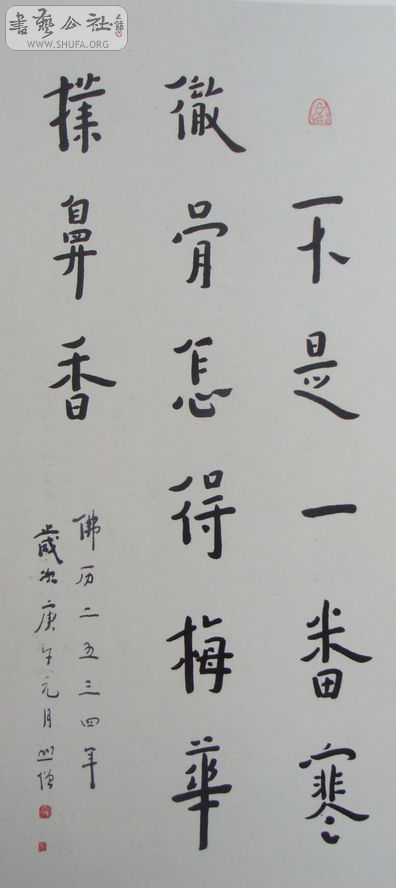 不是一番寒
徹骨怎得梅華
撲鼻香
佛历二五三四年
歲次庚午元月山僧
書藝公社
WWW.SHUFA.ORG